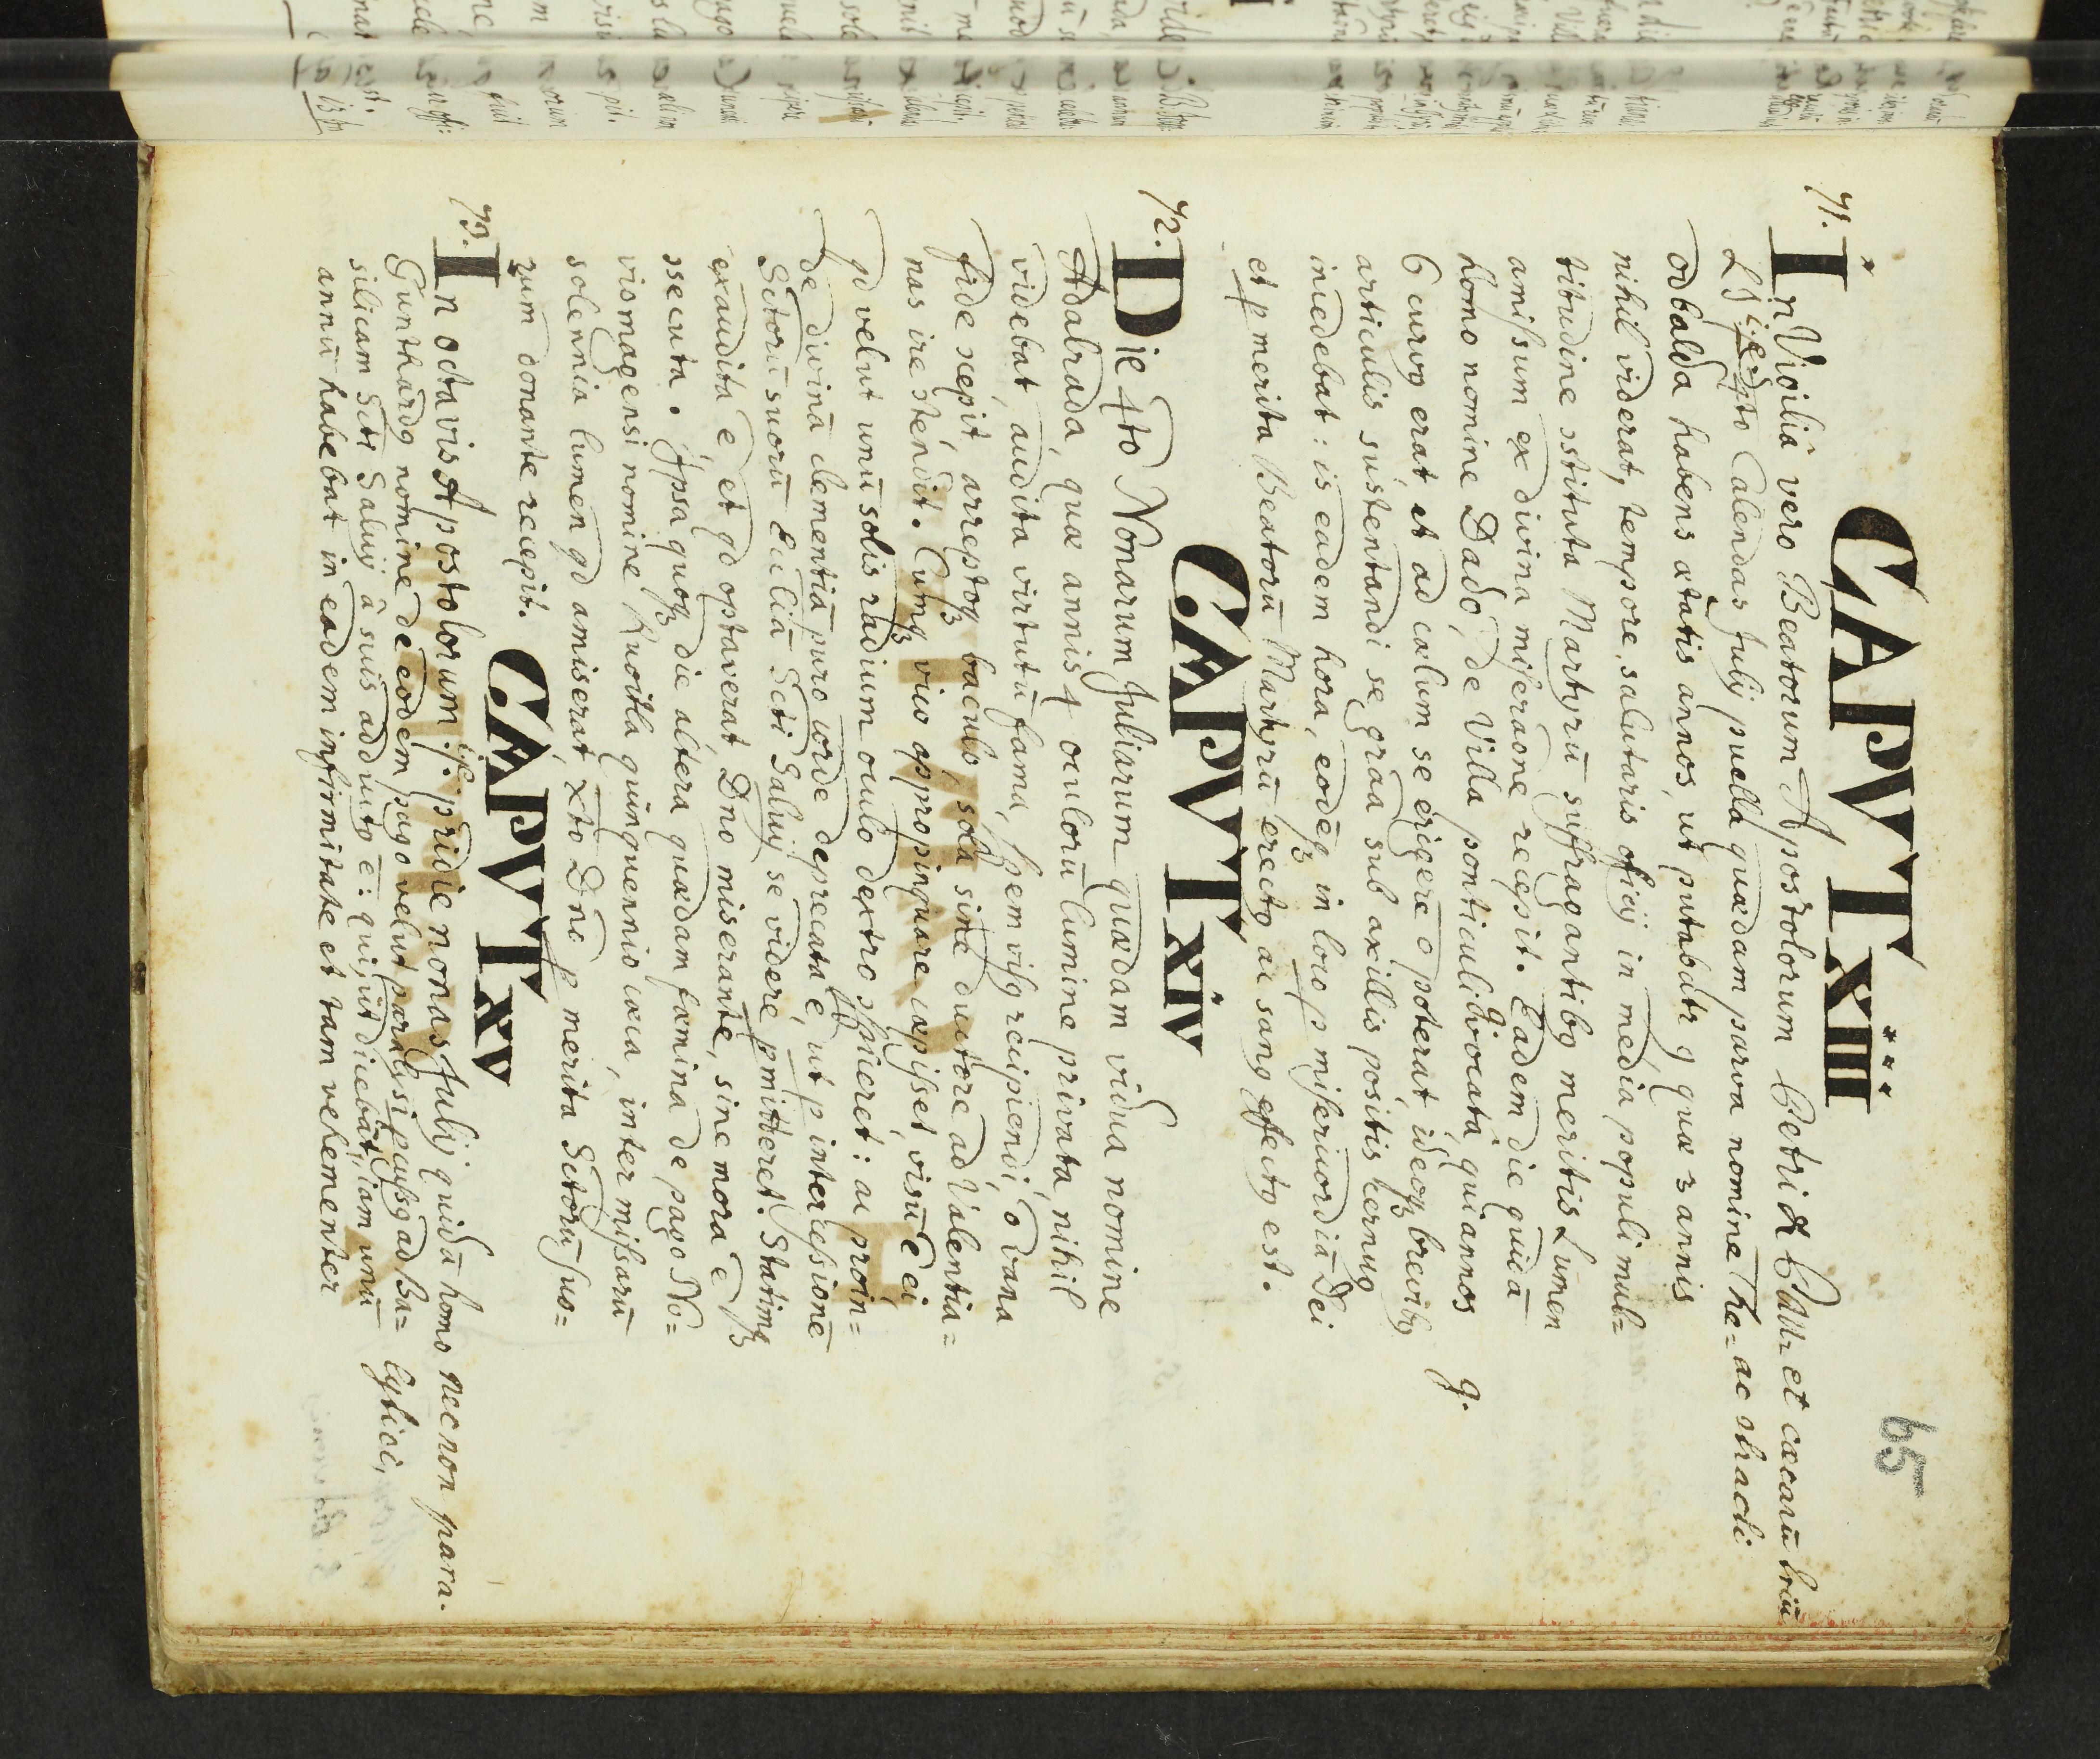 65
CAPVT xiii
71. In Vigiliâ vero Beatorum Apostolorum Petri & Pauli et cæcarū triū
i.e. 4to Calendas Julij puella quædam parva nomine The= ac stracti
odbalda habens ætatis annos, ut putabatr 9 quæ 3 annis
nihil viderat, tempore salutaris officij in mediâ populi mul=
titudine ɔstituta Martyrū suffragantibꝯ meritis Lumen
amissum ex divina miseraōne recepit. Eadem die quidā
homo nomine Dado, de Villa ponticuli vocata, qui annos
q.
6 curvꝯ erat, et ad cælum se erigere ō poterat, ideoqꝫ brevibꝯ
articulis sustentandi se gr̄aa sub axillis positis cernuꝯ
incedebat: is eadem hora, eodēqꝫ in loco ꝑ misericordiā Dei
et ꝑ merita Beatorū Martyrū erectꝯ ac sanꝯ effectꝯ est.
CAPVT xiv
72. Die 4to Nonarum Juliarum quædam vidua nomine
Adalrada, quæ annis 4 oculorū lumine privata, nihil
videbat, audita virtutū fama, spem visꝯ recipiendi, ō vana
fide ɔcepit, arreptoqꝫ baculo, sola sine ductore ad Valentia=
nas ire ɔtendit. Cumqꝫ vico appropinquare cæpisset, visū ē ei
qd velut unū solis radium oculo dextro ɔspiceret: ac proin=
de divinā clementiā puro corde deprecata ē, ut ꝑ intercessionē
Sctorū suorū Ecliā Scti Salvij se videre ꝑmitteret. Statimqꝫ
exaudita ē et qd optaverat Dno miserante, sine mora ē ꝓ
ɔsecuta. Ipsa quoqꝫ die altera quædam fæmina de pago No=
viomagensi nomine Ruoitla quinquennio cæca, inter missarū
solennia lumen qd amiserat xto Dño ꝑ merita Sctorū suo=
rum donante recepit.
CAPVT xv
73. In octavis Apostolorum i.e. pridie nonas Julij quidā homo necnon para-
Gunthardꝯ nomine de eodem pago velut paralysi pcussꝯ ad Ba= lytici,
silicam Scti Salvij â suis adductꝯ ē: qui, ut dicebāt, iam unū
annū habebat in eadem infirmitate et tam vehementer